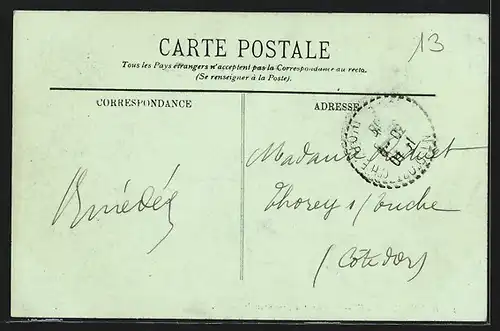 13
CARTE POSTALE
Tous les Pays étrangers n'acceptent pas la Correspondance au recto.
(Se renseigner à la Poste).
CORRESPONDANCE
ADRESSE
Madame
Thorey s/ Ouche
(Côte d'Or)